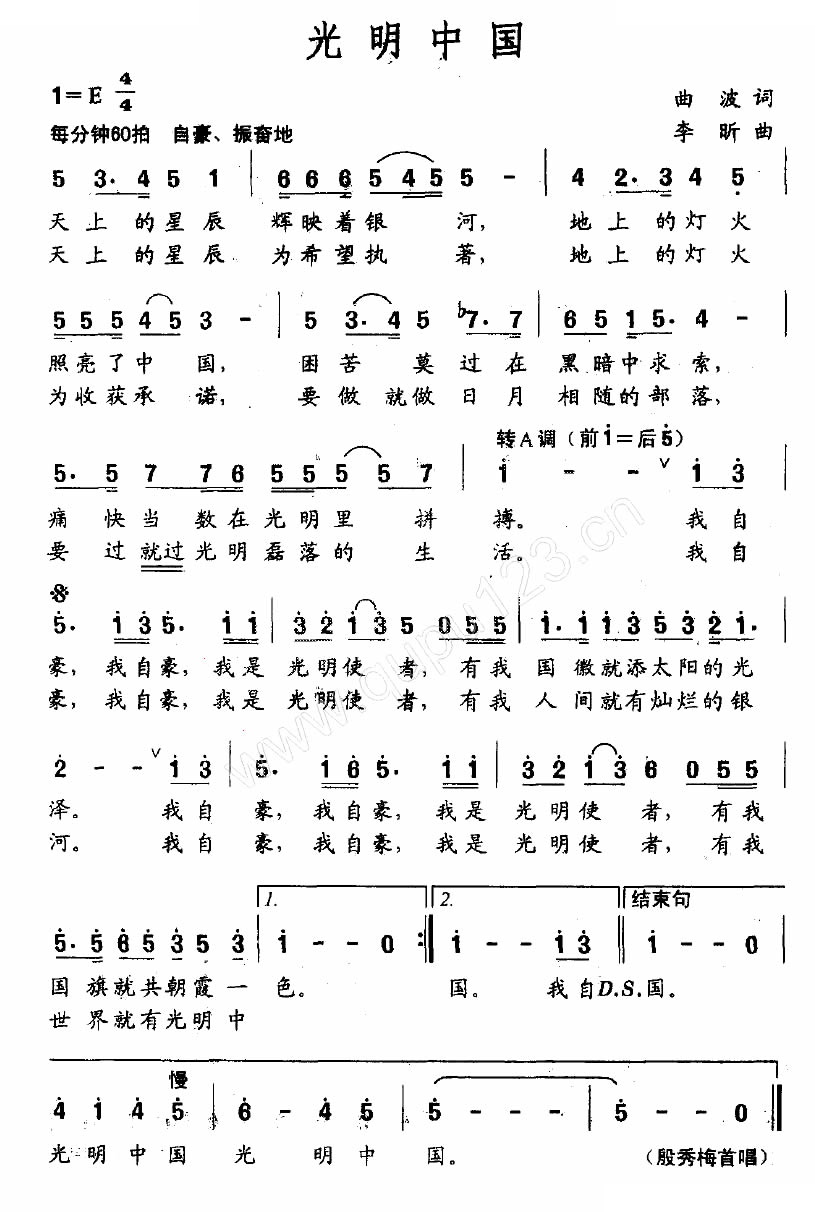 光明中国
1=E 4/4
曲波词
每分钟60拍 自豪、振奋地
李昕曲
5 3· 4 5 1 | 6 6 6 5 4 5 5 - | 4 2· 3 4 5 |
天上的星辰 辉映着银河, 地上的灯火
天上的星辰 为希望执著, 地上的灯火
5 5 5 4 5 3 - | 5 3· 4 5 ♭7· 7 | 6 5 1 5· 4 - |
照亮了中国, 困苦莫过在黑暗中求索,
为收获承诺, 要做就做日月相随的部落,
转A调(前i=后5)
5· 5 7 7 6 5 5 5 5 5 7 | i - - ∨ i 3 |
痛快当数在光明里拼搏。 我自
要过就过光明磊落的生活。 我自
5· i 3 5· i i | 3 2 i 3 5 0 5 5 | i· i i 3 5 3 2 i· |
豪, 我自豪, 我是光明使者, 有我国徽就添太阳的光
豪, 我自豪, 我是光明使者, 有我人间就有灿烂的银
2 - - ∨ i 3 | 5· i 6 5· i i | 3 2 i 3 6 0 5 5 |
泽。 我自豪, 我自豪, 我是光明使者, 有我
河。 我自豪, 我自豪, 我是光明使者, 有我
1. 2. 结束句
5· 5 6 5 3 5 3 | i - - 0 :| i - - i 3 | i - - 0 |
国旗就共朝霞一色。 国。 我自D.S.国。
世界就有光明中
慢
4 i 4 5 | 6 - 4 5 | 5 - - - | 5 - - 0 ‖
光明中国光明中国。
(殷秀梅首唱)
www.qupu123.cn